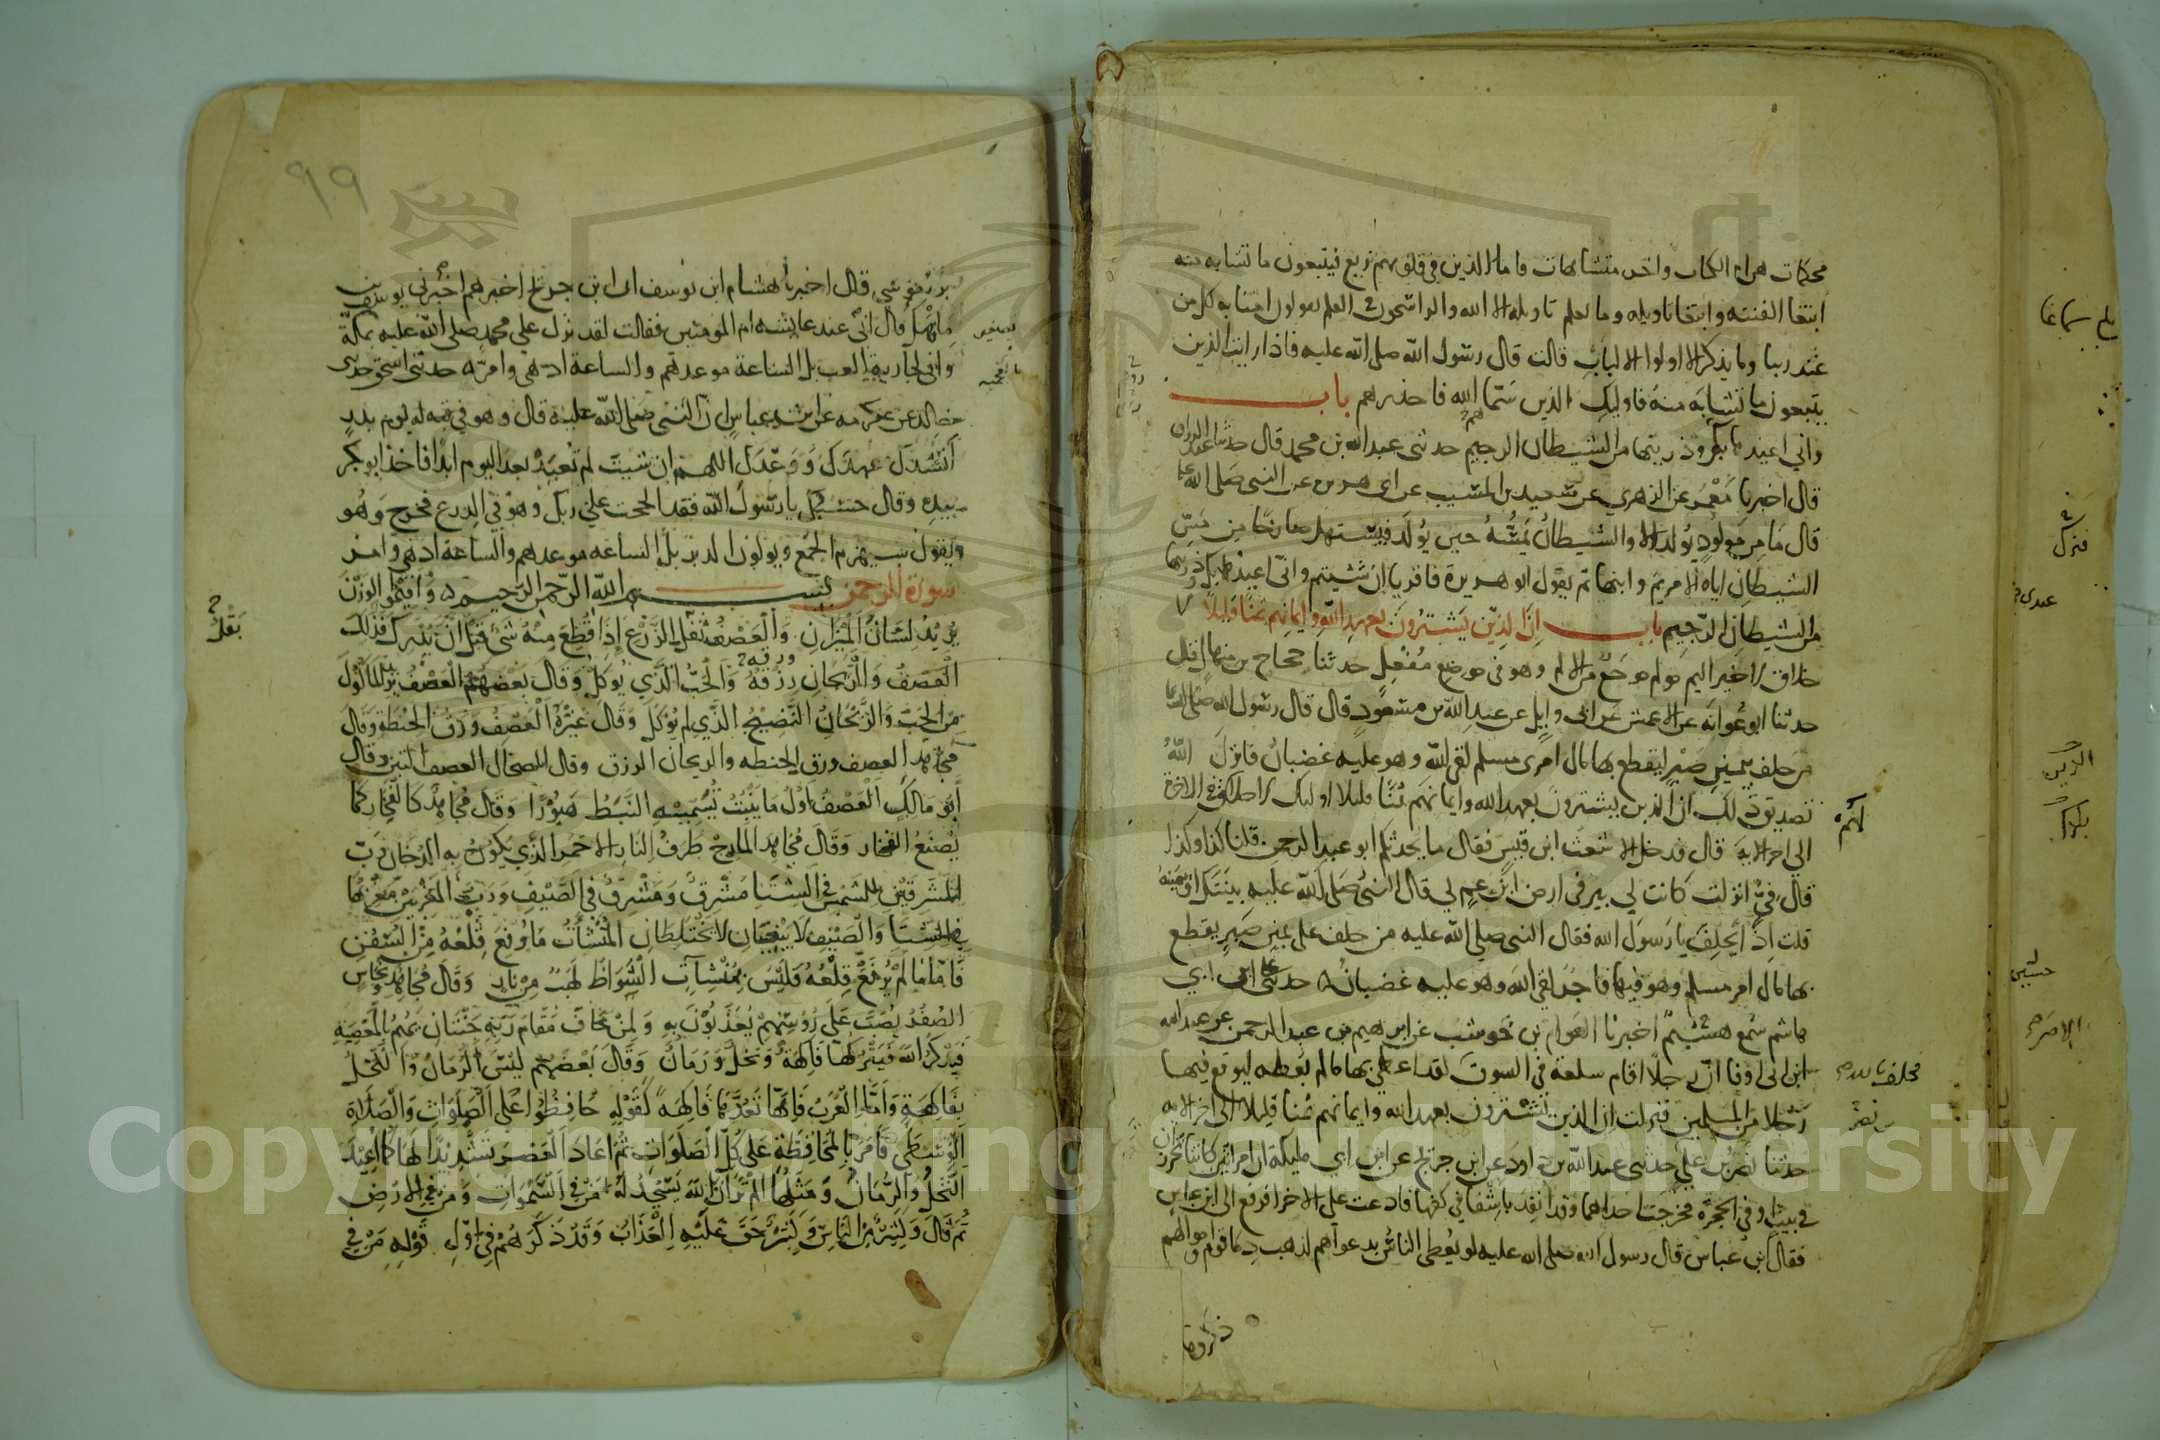 محكمات هن ام الكتاب واخر متشابهات فاما الذين في قلوبهم زيغ فيتبعون ما تشابه منه
ابتغا الفتنه وابتغا تاويله وما يعلم تاويله الا الله والراسخون في العلم يقولون امنا به كل من
عند ربنا وما يذكر الا اولوا الالباب قالت قال رسول الله صلى الله عليه فاذا رايت الذين
يتبعون ما تشابه منه فاوليك الذين سما الله فاحذرهم باب
واني اعيذها بك وذريتها من الشيطان الرجيم حدثنى عبد الله بن محمد قال حدثنا عبد الرزاق
قال اخبرنا معمر عن الزهري عن سعيد بن المسيب عن ابى هريرة عن النبى صلى الله عليه
قال ما من مولود يولد الا والشيطان يمسه حين يولد فيستهل صارخا من مس
الشيطان اياه الا مريم وابنها ثم يقول ابو هريرة فاقريا ان شيتم وانى اعيذها بك وذريتها
من الشيطان الرجيم باب ان الذين يشترون بعهد الله وايمانهم ثمنا قليلا
خلاق لا خير اليم مولم موجع من الالم وهو في موضع مفعل حدثنا حجاج بن منهال قال
حدثنا ابو عوانه عن الاعمش عن ابى وايل عن عبد الله بن مسعود قال قال رسول الله صلى الله عليه
من حلف بيمين صبر ليقطع بها مال امرى مسلم لقى الله وهو عليه غضبان فانزل الله
تصديق ذلك ان الذين يشترون بعهد الله وايمانهم ثمنا قليلا اوليك لا خلاق لهم في الاخرة
الي اخر الاية قال فدخل الاشعث ابن قيس فقال ما يحدثكم ابو عبد الرحمن قلنا كذا وكذا
قال في انزلت كانت لي بير فى ارض ابن عم لي قال النبى صلى الله عليه بينتك او يمينه
قلت اذا يحلف يا رسول الله فقال النبى صلى الله عليه من حلف على يمين صبر يقطع
بها مال امر مسلم وهو فيها فاجر لقى الله وهو عليه غضبان حدثنى على ابن ابي
هاشم سمع هشيم اخبرنا العوام بن حوشب عن ابرهيم بن عبد الرحمن عن عبد الله
ابن ابى اوفا ان رجلا اقام سلعة في السوق لقد اعطي بها ما لم يعطه ليوقع فيها
رجلا من المسلمين فنزلت ان الذين يشترون بعهد الله وايمانهم ثمنا قليلا الى اخر الاية
حدثنا نصر بن علي حدثنى عبد الله بن داود عن ابن جريج عن ابن ابي مليكة ان امراتين كانتا تخرزان
في بيت او في الحجرة فخرجت احداهما وقد انفذ باشفا في كفها فادعت على الاخرا فرفع الى ابن عباس
فقال ابن عباس قال رسول الله صلى الله عليه لو يعطى الناس بدعواهم لذهب دما قوم واموالهم
ذكروها
٩٩
قال اخبرنا هشام ابن يوسف ان ابن جريج اخبرهم اخبرنى يوسف بن
ماهك قال انى عند عايشه ام المومنين فقالت لقد نزل علي محمد صلى الله عليه بمكة
وانى لجارية العب بل الساعة موعدهم والساعة ادهى وامر حدثنى اسحق حدثنى
خالد عن عكرمه عن ابن عباس ان النبى صلى الله عليه قال وهو في قبه له يوم بدر
انشدك عهدك ووعدك اللهم ان شيت لم تعبد بعد اليوم ابدا فاخذ ابو بكر
بيده وقال حسبك يا رسول الله فقد الححت علي ربك وهو في الدرع فخرج وهو
يقول سيهزم الجمع ويولون الدبر بل الساعه موعدهم والساعة ادهى وامر
سورة الرحمن بسم الله الرحمن الرحيم واقيموا الوزن
يريد لسان الميزان والعصف بقل الزرع اذا قطع منه شى قبل ان يدرك فذلك
العصف والريحان رزقه والحب الذي يوكل وقال بعضهم العصف يريد الماكول
من الحب والريحان النضيج الذي لم يوكل وقال غيره العصف ورق الحنطة وقال
مجاهد العصف ورق الحنطه والريحان الرزق وقال الضحاك العصف التبن وقال
ابو مالك العصف اول ما ينبت تسميه النبط هبورا وقال مجاهد كالفخار كما
يصنع الفخار وقال مجاهد المارج طرف النار الاحمر الذي يكون به الدخان رب
المشرقين للشمس في الشتا مشرق ومشرق في الصيف ورب المغربين مغربها
في الشتا والصيف لا يبغيان لا يختلطان المنشات ما رفع قلعه من السفن
فاما ما لم يرفع قلعه فليس بمنشات الشواظ لهب من نار وقال مجاهد ونحاس
الصفر يصب على روسهم يعذبون به ولمن خاف مقام ربه جنتان يهم بالمعصية
فيذكر الله فيتركها فاكهة ونخل ورمان وقال بعضهم ليس الرمان والنخل
بفاكهة واما العرب فانها تعدها فاكهة كقوله حافظوا على الصلوات والصلاة
الوسطى فامر بالمحافظة على كل الصلوات ثم اعاد العصر تشديدا لها كما اعيد
النخل والرمان ومثلها الم تر ان الله يسجد له من في السموات ومن في الارض
ثم قال وكثير من الناس وكثير حق عليه العذاب وقد ذكرهم في اول قوله من في